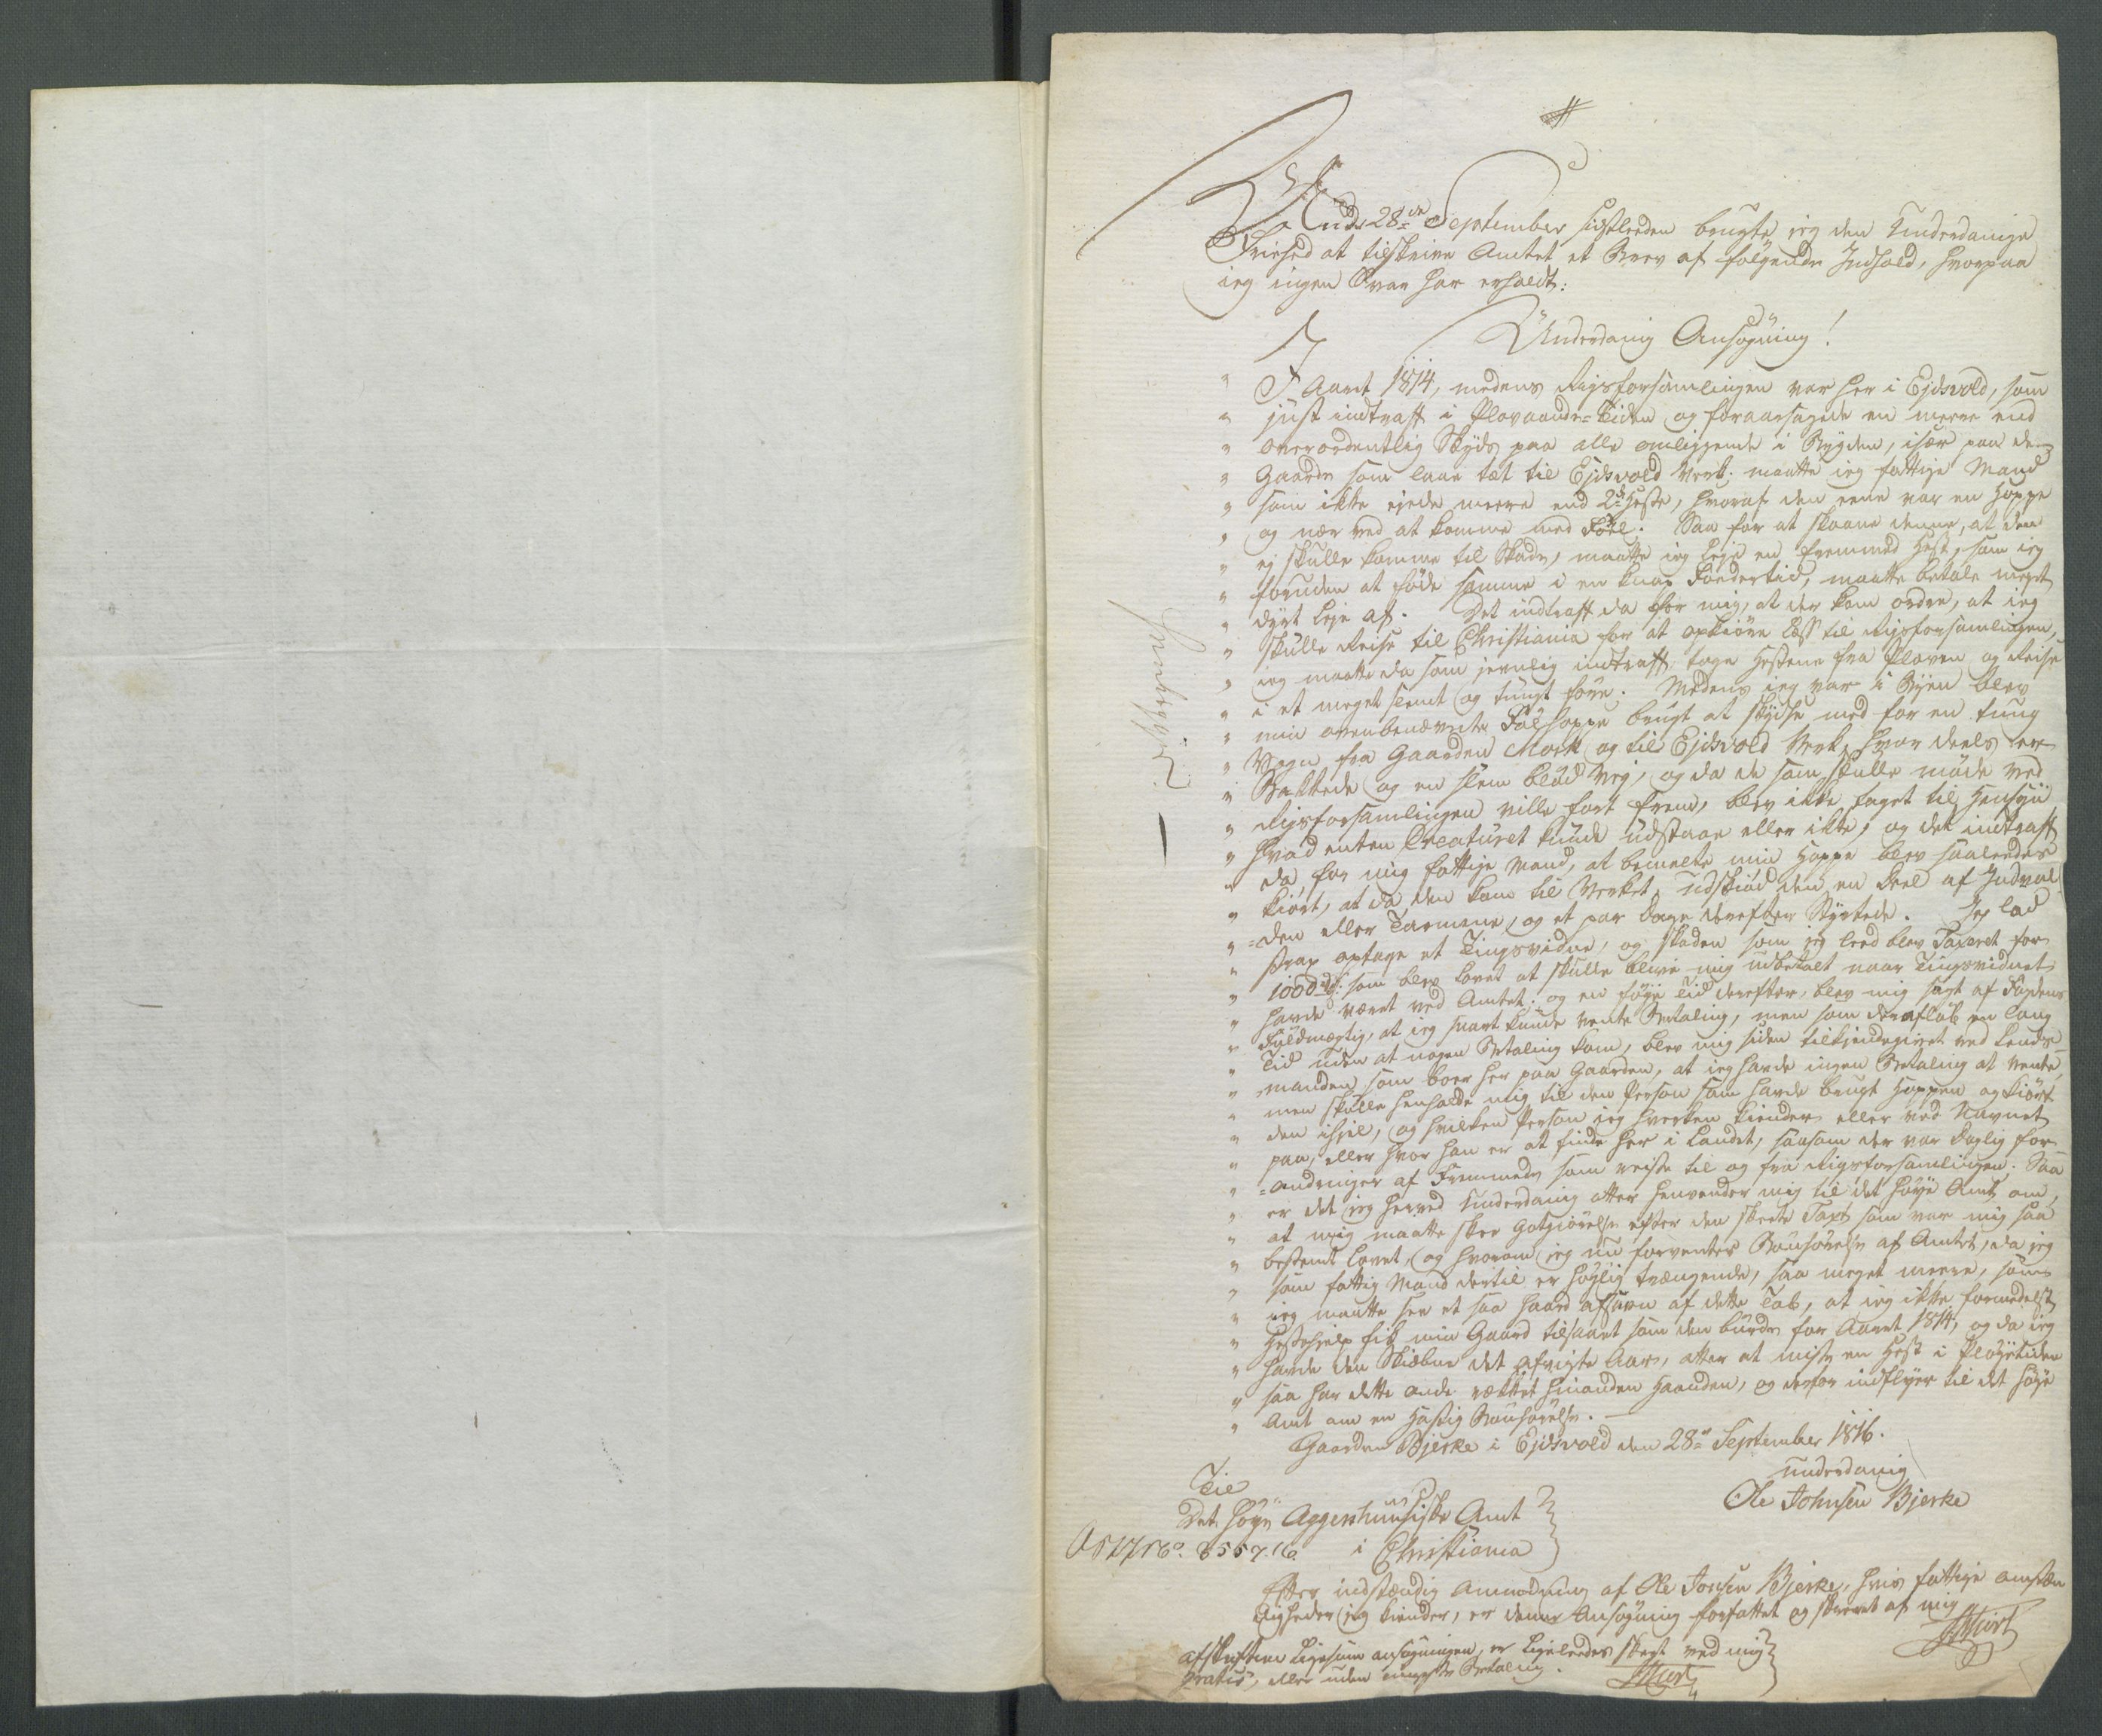 Under 28de September sidstleeden brugte jeg den Underdanige
Friehed at tilskrive Amtet et Brev af følgende Indhold, hvorpaa
ieg ingen Svar har erholdt:
Underdanig Ansøgning!
" I Aaret 1814, medens Rigsforsamlingen var her i Ejdsvold, som
" just indtraff i Plovaande-Tiden og foraarsagede en meere end
" overordentlig Skyds paa alle omliggende i Bygden, især paa de
" Gaarde som laae tæt til Ejdsvold Verk; maatte ieg fattige Mand
" som ikke ejede meere end 2de Heste, hvoraf den eene var en Hoppe
" og nær ved at komme med Føll. Saa for at skaane denne, at den
" ej skulle komme til Skade, maatte ieg leje en fremmed Hest, som ieg
" foruden at føde samme i en knap Foedertid, maatte betale meget
" dyrt Leje af. Det indtraff da for mig, at der kom ordre, at ieg
" skulle Reise til Christiania for at opkiøre Læss til Rigsforsamlingen,
" ieg maatte da som jevnlig indtraff tage Hestene fra Ploven og Reise
" i et meget slemt og tungt føre. Medens ieg var i Byen blev
" min ovenbenævnte Følhoppe brugt at skydse med for en tung
" Vogn fra Gaarden Mork og til Ejdsvold Verk, hvor deels er
" Bakkede og en slem blød Vej, og da de som skulle møde ved
" Rigsforsamlingen ville fort frem, blev ikke taget til Hensyn
" hvad enten Creaturet kunde udstaae eller ikke, og det indtraff
" da, for mig fattige Mand, at bemelte min Hoppe blev saaleedes
" kiørt, at da den kom til Verket, udskiød den en Deel af Indvol
" =den eller Tarmene, og et par dage derefter styrtede. Jeg lod
" strax optage et Tingsvidne, og skaden som jeg leed blev Taxeret for
" 1000 rd: som blev lovet at skulle blive mig udbetalt naar Tingsvidnet
" havde været ved Amtet; og en føye Tid derefter, blev mig sagt af Fogdens
" Fuldmægtig, at ieg snart kunde vente Betaling, men som der afløb en lang
" Tid uden at nogen Betaling kom, blev mig siden tilkjendegivet ved Lends-
" manden som boer her paa Gaarden, at ieg havde ingen Betaling at vente,
" men skulle henholde mig til den Person som havde brugt Hoppen og kiørt
" den ihjel, og hvilken Person jeg hverken kiender eller ved Navnet
" paa, eller hvor han er at finde her i Landet, saasom der var daglig for-
" =andringer af Fremmede som reiste til og fra Rigsforsamlingen. Saa
" er det jeg herved Underdanig atter henvender mig til det høye Amt om,
" at mig maatte skee Gotgiørelse efter den skeete Taxt som var mig saa
" bestemt lovet, og hvorom jeg nu forventer Bønhørelse af Amtet, da jeg
" som fattig Mand dertil er høylig trængende, saa meget meere, som
" ieg maatte see et saa haard afsavn af dette Tab, at ieg ikke formedelst
" Hestehielp fik min Gaard tilsaaet som den burde for Aaret 1814, og da ieg
" havde den Skiæbne det afvigte Aar, atter at miste en Hest i Pløyetiden
" saa har dette onde rækket hinanden Haanden, og derfor indflyer til det høye
" Amt om en hastig Bønhørelse.
Gaarden Bjerke i Ejdsvold den 28de September 1816.
underdanig
Ole Johnsen Bjerke
Til
Det høye Aggershuusiske Amt
i Christiania
3557.16
Efter indstændig Anmodning af Ole Jonsen Bjerke, hvis fattige omstæn
digheder jeg kiender, er denne Ansøgning forfattet og skrevet af mig
afskriften ligesom ansøgningen, er ligeleedes skeet ved mig
gratis, eller uden mindste Betaling.